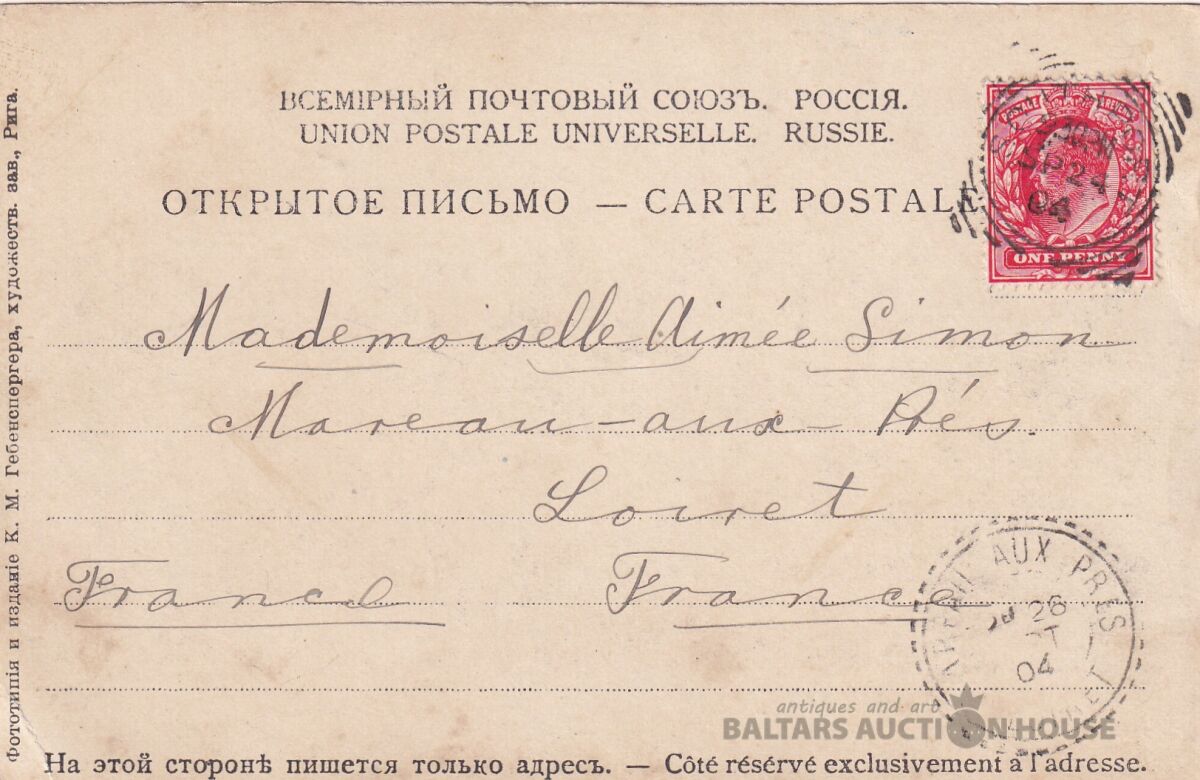 ВСЕМІРНЫЙ ПОЧТОВЫЙ СОЮЗЪ. РОССІЯ.
UNION POSTALE UNIVERSELLE. RUSSIE.
ОТКРЫТОЕ ПИСЬМО — CARTE POSTALE
POSTAGE REVENUE
04
ONE PENNY
Mademoiselle Aimée Simon
Mareau-aux-Prés.
Loiret
France France
AREAU AUX PRES
26
04
LOIRET
antiques and art
BALTARS AUCTION HOUSE
На этой сторонѣ пишется только адресъ. — Côté résérvé exclusivement à l'adresse.
Фототипія и изданіе К. М. Гебенспергера, художеств. зав., Рига.